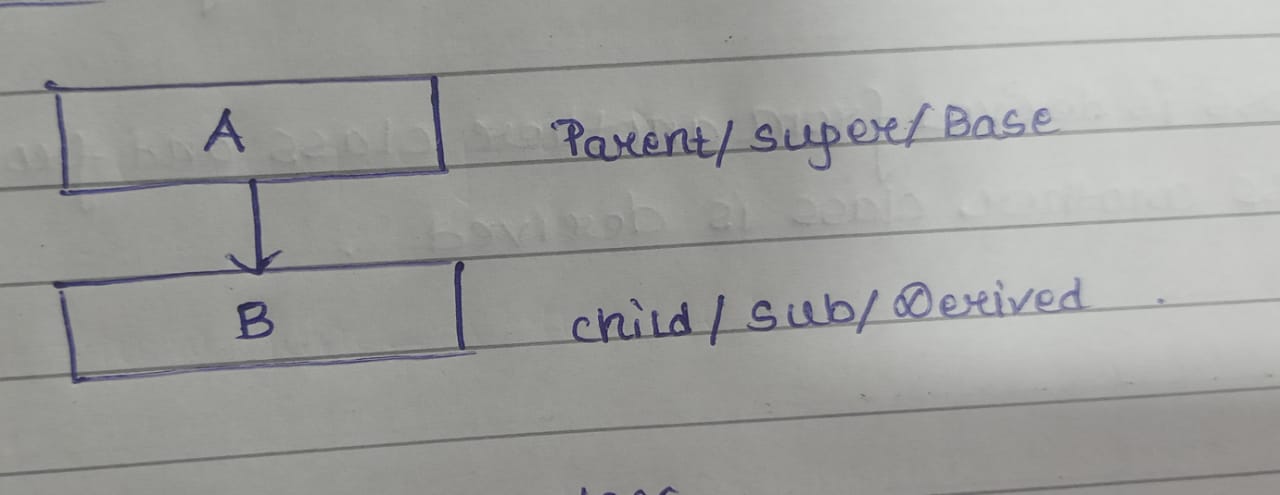 A
Parent/ Super/ Base
B
child / Sub/ Derived